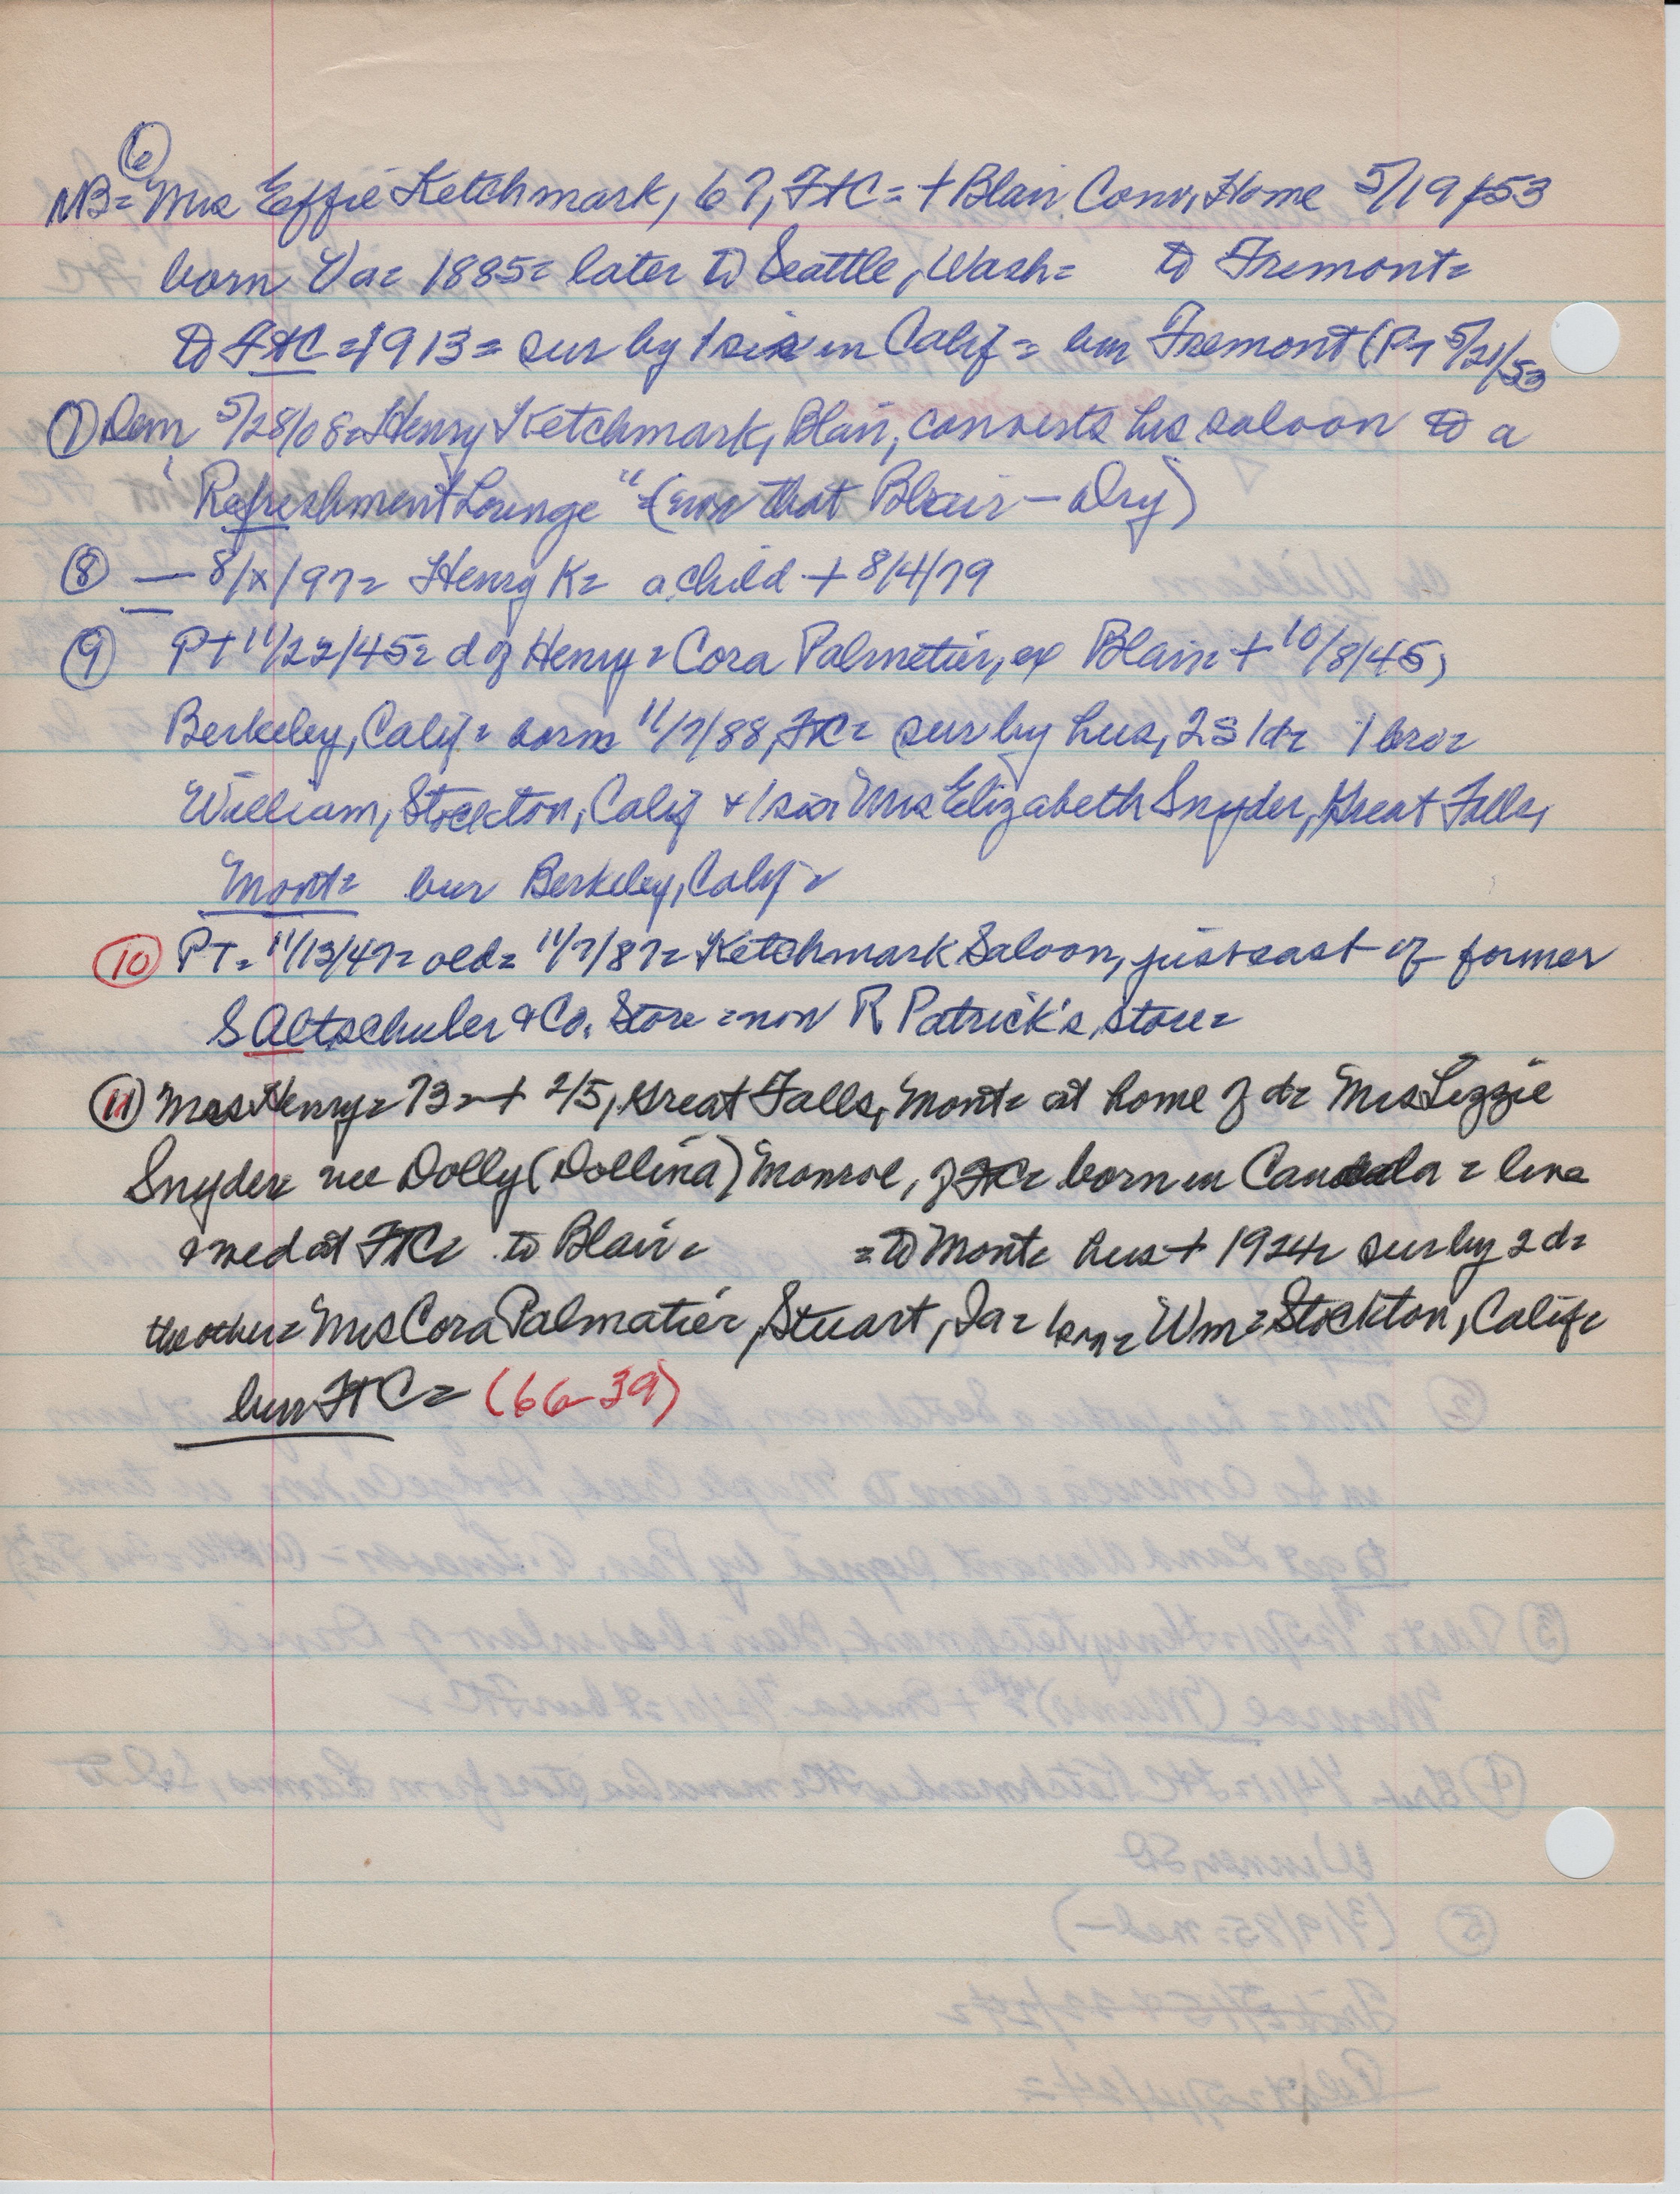 ⑥
NB= Mrs Effie Ketchmark, 67, FtC= + Blair Conv. Home 5/19/53
born Va= 1885= later to Seattle, Wash= to Fremont=
to FtC = 1913 = sur by 1 sis in Calif = bur Fremont (PT 5/21/53
⑦ Dem 5/28/08= Henry Ketchmark, Blair, converts his saloon to a
"Refreshment Lounge" = (now that Blair - dry)
⑧ — 8/x/97= Henry K= a child + 8/4/79
⑨ PT 11/22/45= d of Henry = Cora Palmetier, of Blair= + 10/8/45,
Berkeley, Calif = born 11/7/88, FtC= sur by hus, 2s 1d= 1 bro=
William, Stockton, Calif + 1 sis Mrs Elizabeth Snyder, Great Falls,
Mont= bur Berkeley, Calif=
⑩ PT= 11/13/47= old= 11/7/87= Ketchmark Saloon, just east of former
S Altschuler & Co. Store = now R Patrick's store=
⑪ Mrs Henry= 73= + 2/5, Great Falls, Mont= at home of d= Mrs Lizzie
Snyder= nee Dolly (Dollina) Monroe, of FtC= born in Canada = live
& wed at FtC= to Blair= = to Mont= hus + 1924= sur by 2 d=
the other= Mrs Cora Palmatier, Stuart, Ia= 1 son= Wm= Stockton, Calif=
bur FtC= (66-39)